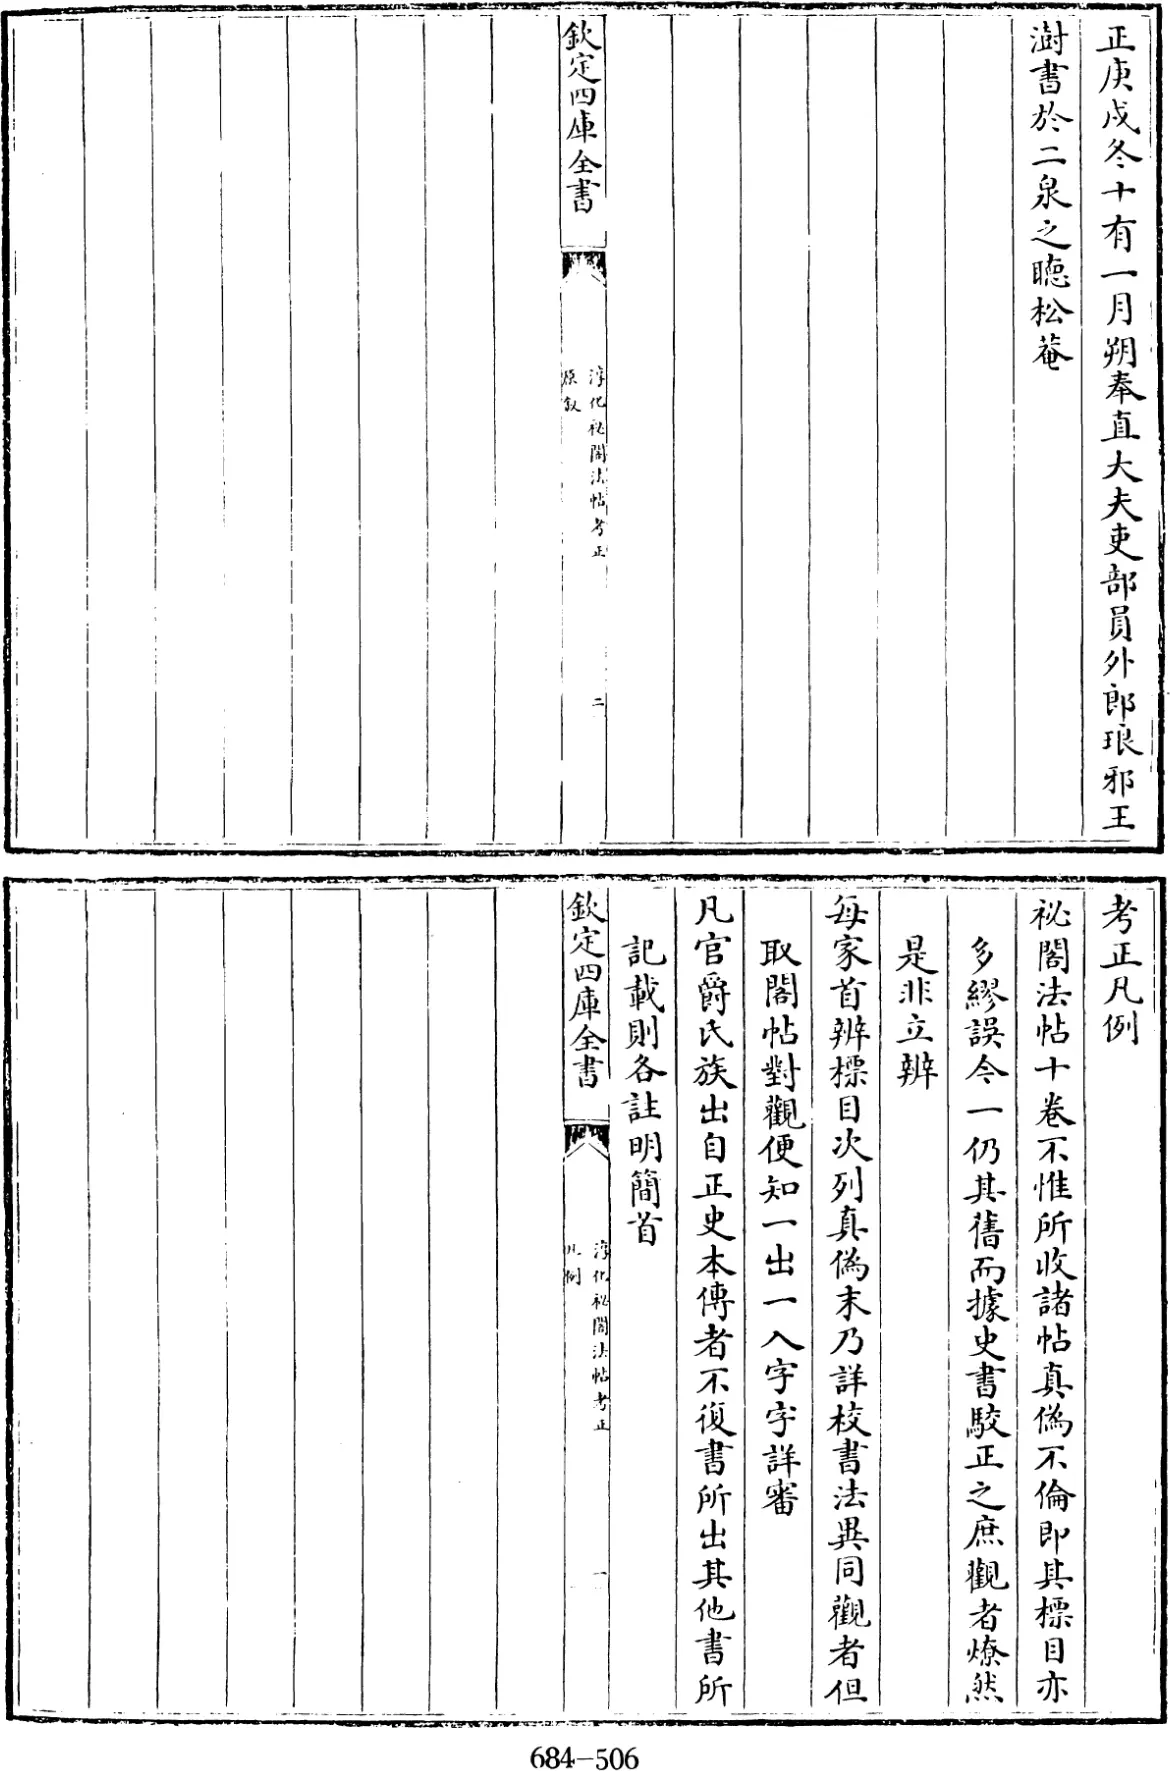 正庚戌冬十有一月朔奉直大夫吏部員外郎琅邪王
澍書於二泉之聴松菴
欽定四庫全書
淳化祕閣法帖考正
原敘
二
考正凡例
祕閣法帖十卷不惟所收諸帖真偽不倫即其標目亦
多繆誤今一仍其舊而據史書駮正之庶觀者燎然
是非立辨
每家首辨標目次列真偽末乃詳校書法異同觀者但
取閣帖對觀便知一出一入字字詳審
凡官爵氏族出自正史本傳者不復書所出其他書所
記載則各註明簡首
欽定四庫全書
淳化祕閣法帖考正
凡例
一
684-506